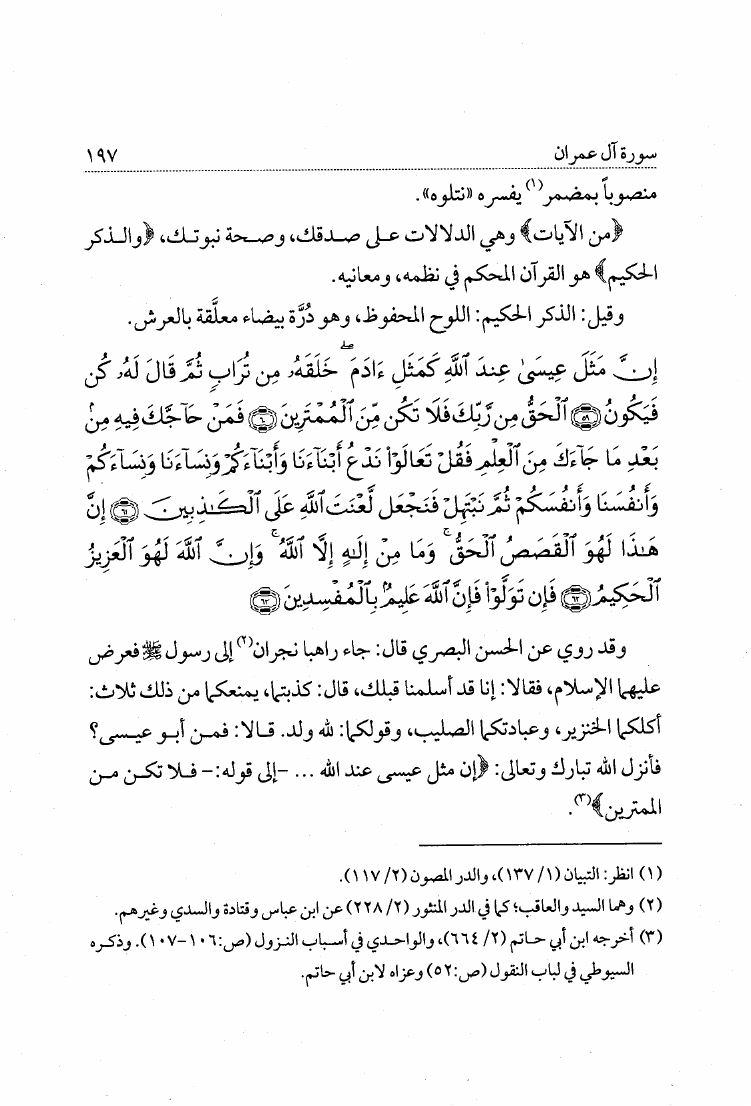 سورة آل عمران ١٩٧
منصوباً بمضمر(١) يفسره «نتلوه».
﴿من الآيات﴾ وهي الدلالات على صدقك، وصحة نبوتك، ﴿والذكر
الحكيم﴾ هو القرآن المحكم في نظمه، ومعانيه.
وقيل: الذكر الحكيم: اللوح المحفوظ، وهو دُرَّة بيضاء معلَّقة بالعرش.
إِنَّ مَثَلَ عِيسَىٰ عِندَ ٱللَّهِ كَمَثَلِ ءَادَمَ ۖ خَلَقَهُۥ مِن تُرَابٍ ثُمَّ قَالَ لَهُۥ كُن
فَيَكُونُ ﴿٥٩﴾ ٱلْحَقُّ مِن رَّبِّكَ فَلَا تَكُن مِّنَ ٱلْمُمْتَرِينَ ﴿٦٠﴾ فَمَنْ حَآجَّكَ فِيهِ مِنۢ
بَعْدِ مَا جَآءَكَ مِنَ ٱلْعِلْمِ فَقُلْ تَعَالَوْا۟ نَدْعُ أَبْنَآءَنَا وَأَبْنَآءَكُمْ وَنِسَآءَنَا وَنِسَآءَكُمْ
وَأَنفُسَنَا وَأَنفُسَكُمْ ثُمَّ نَبْتَهِلْ فَنَجْعَل لَّعْنَتَ ٱللَّهِ عَلَى ٱلْكَٰذِبِينَ ﴿٦١﴾ إِنَّ
هَٰذَا لَهُوَ ٱلْقَصَصُ ٱلْحَقُّ ۚ وَمَا مِنْ إِلَٰهٍ إِلَّا ٱللَّهُ ۚ وَإِنَّ ٱللَّهَ لَهُوَ ٱلْعَزِيزُ
ٱلْحَكِيمُ ﴿٦٢﴾ فَإِن تَوَلَّوْا۟ فَإِنَّ ٱللَّهَ عَلِيمٌۢ بِٱلْمُفْسِدِينَ ﴿٦٣﴾
وقد روي عن الحسن البصري قال: جاء راهبا نجران(٢) إلى رسول ﷺ فعرض
عليهما الإسلام، فقالا: إنا قد أسلمنا قبلك، قال: كذبتما، يمنعكما من ذلك ثلاث:
أكلكما الخنزير، وعبادتكما الصليب، وقولكما: لله ولد. قالا: فمن أبو عيسى؟
فأنزل الله تبارك وتعالى: ﴿إن مثل عيسى عند الله ... -إلى قوله:- فلا تكن من
الممترين﴾(٣).
(١) انظر: التبيان (١/ ١٣٧)، والدر المصون (٢/ ١١٧).
(٢) وهما السيد والعاقب؛ كما في الدر المنثور (٢/ ٢٢٨) عن ابن عباس وقتادة والسدي وغيرهم.
(٣) أخرجه ابن أبي حاتم (٢/ ٦٦٤)، والواحدي في أسباب النزول (ص:١٠٦-١٠٧). وذكره
السيوطي في لباب النقول (ص:٥٢) وعزاه لابن أبي حاتم.